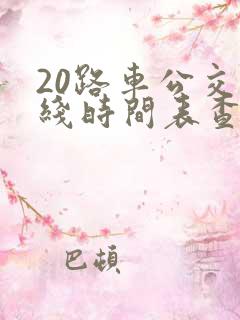 20路車公交
綫時間表查
巴頓